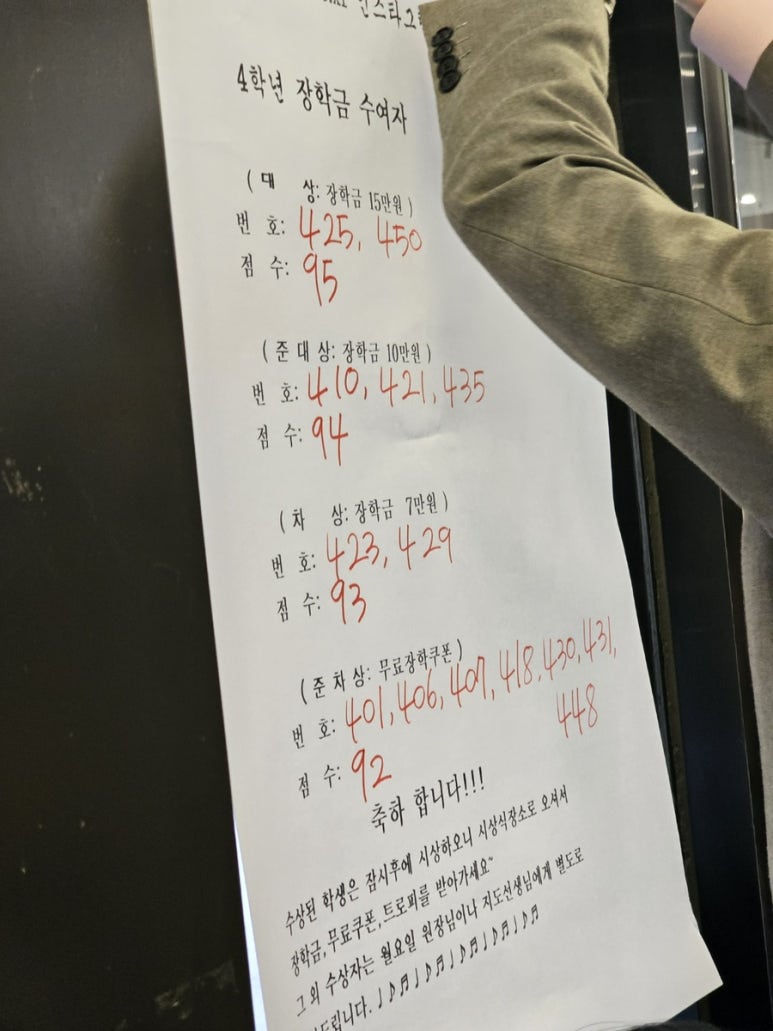 인스타그
4학년 장학금 수여자
( 대 상: 장학금 15만원 )
번 호: 425, 450
점 수: 95
( 준 대 상: 장학금 10만원 )
번 호: 410, 421, 435
점 수: 94
( 차 상: 장학금 7만원 )
번 호: 423, 429
점 수: 93
( 준 차 상: 무료장학쿠폰 )
번 호: 401, 406, 407, 418, 430, 431,
448
점 수: 92
축하 합니다!!!
수상된 학생은 잠시후에 시상하오니 시상식장소로 오셔서
장학금, 무료쿠폰, 트로피를 받아가세요~
그 외 수상자는 월요일 원장님이나 지도선생님에게 별도로
드립니다. ♩♪♬♩♪♬♩♪♬♩♪♬♩♪♬